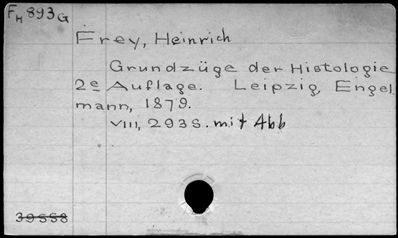 FH893G
Frey, Heinrich
Grundzüge der Histologie
2e Auflage. Leipzig, Engel
mann, 1879.
VIII, 293 S. mit Abb
39558